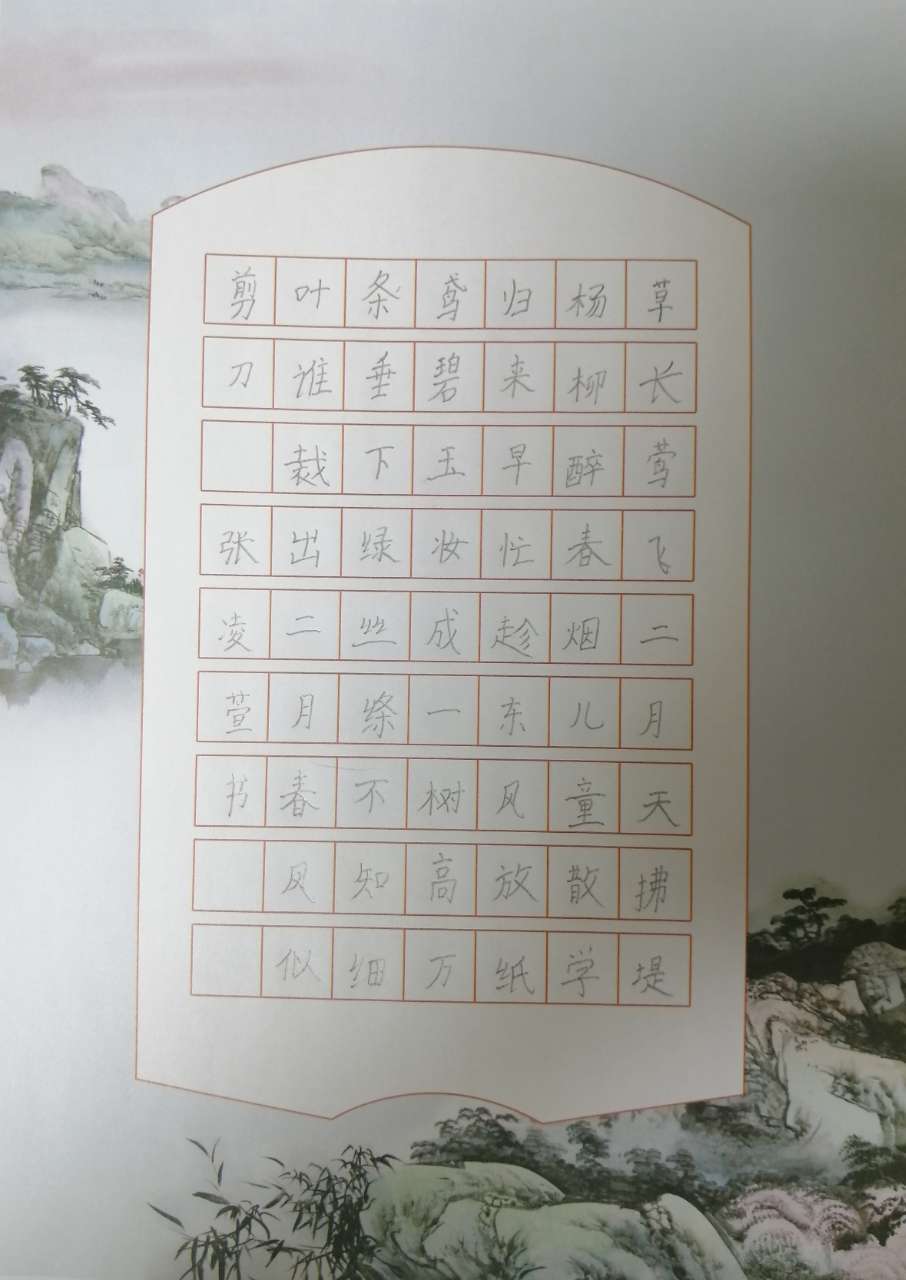 草长莺飞二月天拂堤
杨柳醉春烟儿童散学
归来早忙趁东风放纸
鸢碧玉妆成一树高万
条垂下绿丝绦不知细
叶谁裁出二月春风似
剪刀 张凌萱书